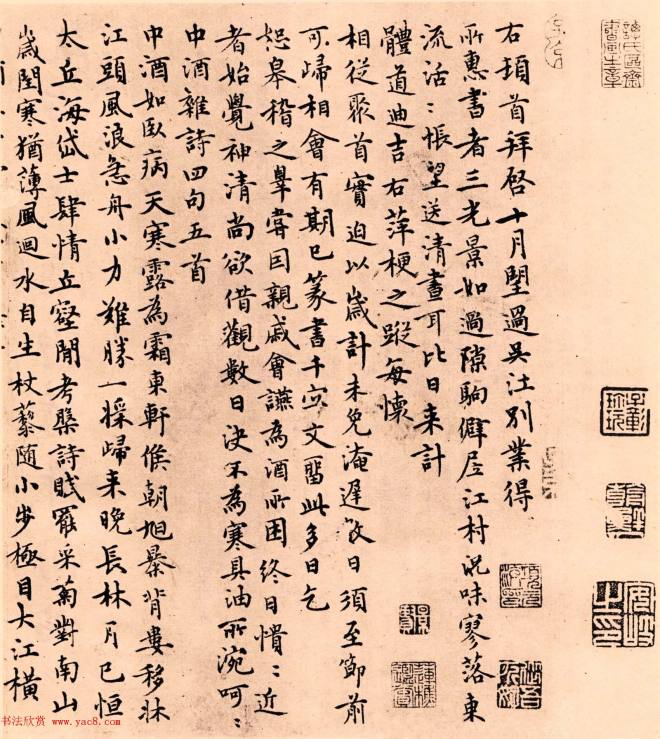 右頓首拜啓十月望過吳江別業得
所惠書者三光景如過隙駒僻居江村況味寥落東
流活〻悵望送清晝耳比日来計
體道迪吉右萍梗之蹤每懷
相從聚首實迫以歲計未免淹遲數日須至節前
可歸相會有期已篆書千字文留此多日乞
恕皋稽之辜嘗因親戚會讌為酒所困終日憒〻近
者始覺神清尚欲借觀數日決不為寒具油所涴呵〻
中酒雜詩四句五首
中酒如臥病天寒露為霜東軒俟朝旭暴背婁移牀
江頭風浪急舟小力難勝一櫂歸来晚長林月已恒
太丘海岱士肆情丘壑閒考槃詩賦罷采菊對南山
歲閏寒猶薄風迴水自生杖藜隨小步極目大江橫
书法欣赏 www.yac8.com